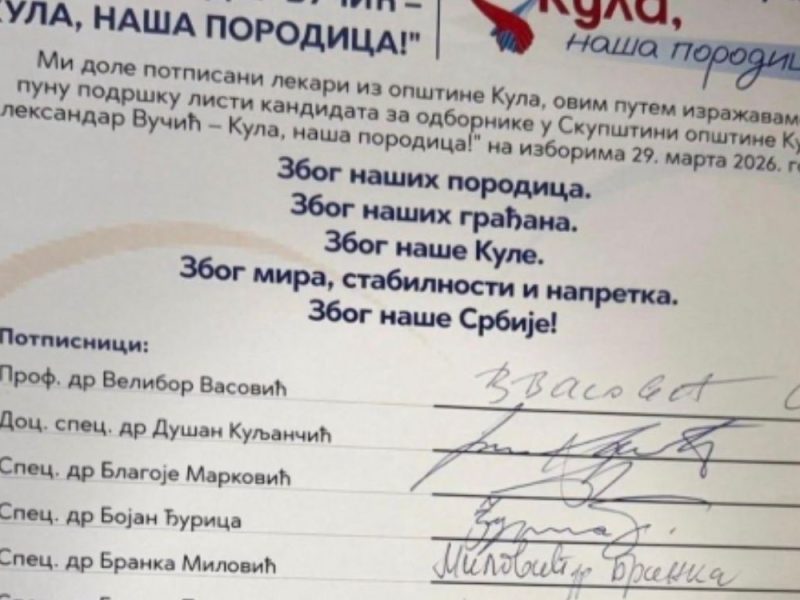 ВУЧИЋ –
КУЛА, НАША ПОРОДИЦА!"
Кула,
наша породиц
Ми доле потписани лекари из општине Кула, овим путем изражавам
пуну подршку листи кандидата за одборнике у Скупштини општине Ку
лександар Вучић – Кула, наша породица!" на изборима 29. марта 2026. го
Због наших породица.
Због наших грађана.
Због наше Куле.
Због мира, стабилности и напретка.
Због наше Србије!
Потписници:
Проф. др Велибор Васовић
ВВасовић
Доц. спец. др Душан Куљанчић
Спец. др Благоје Марковић
Спец. др Бојан Ђурица
Спец. др Бранка Миловић
Миловић др Бранка